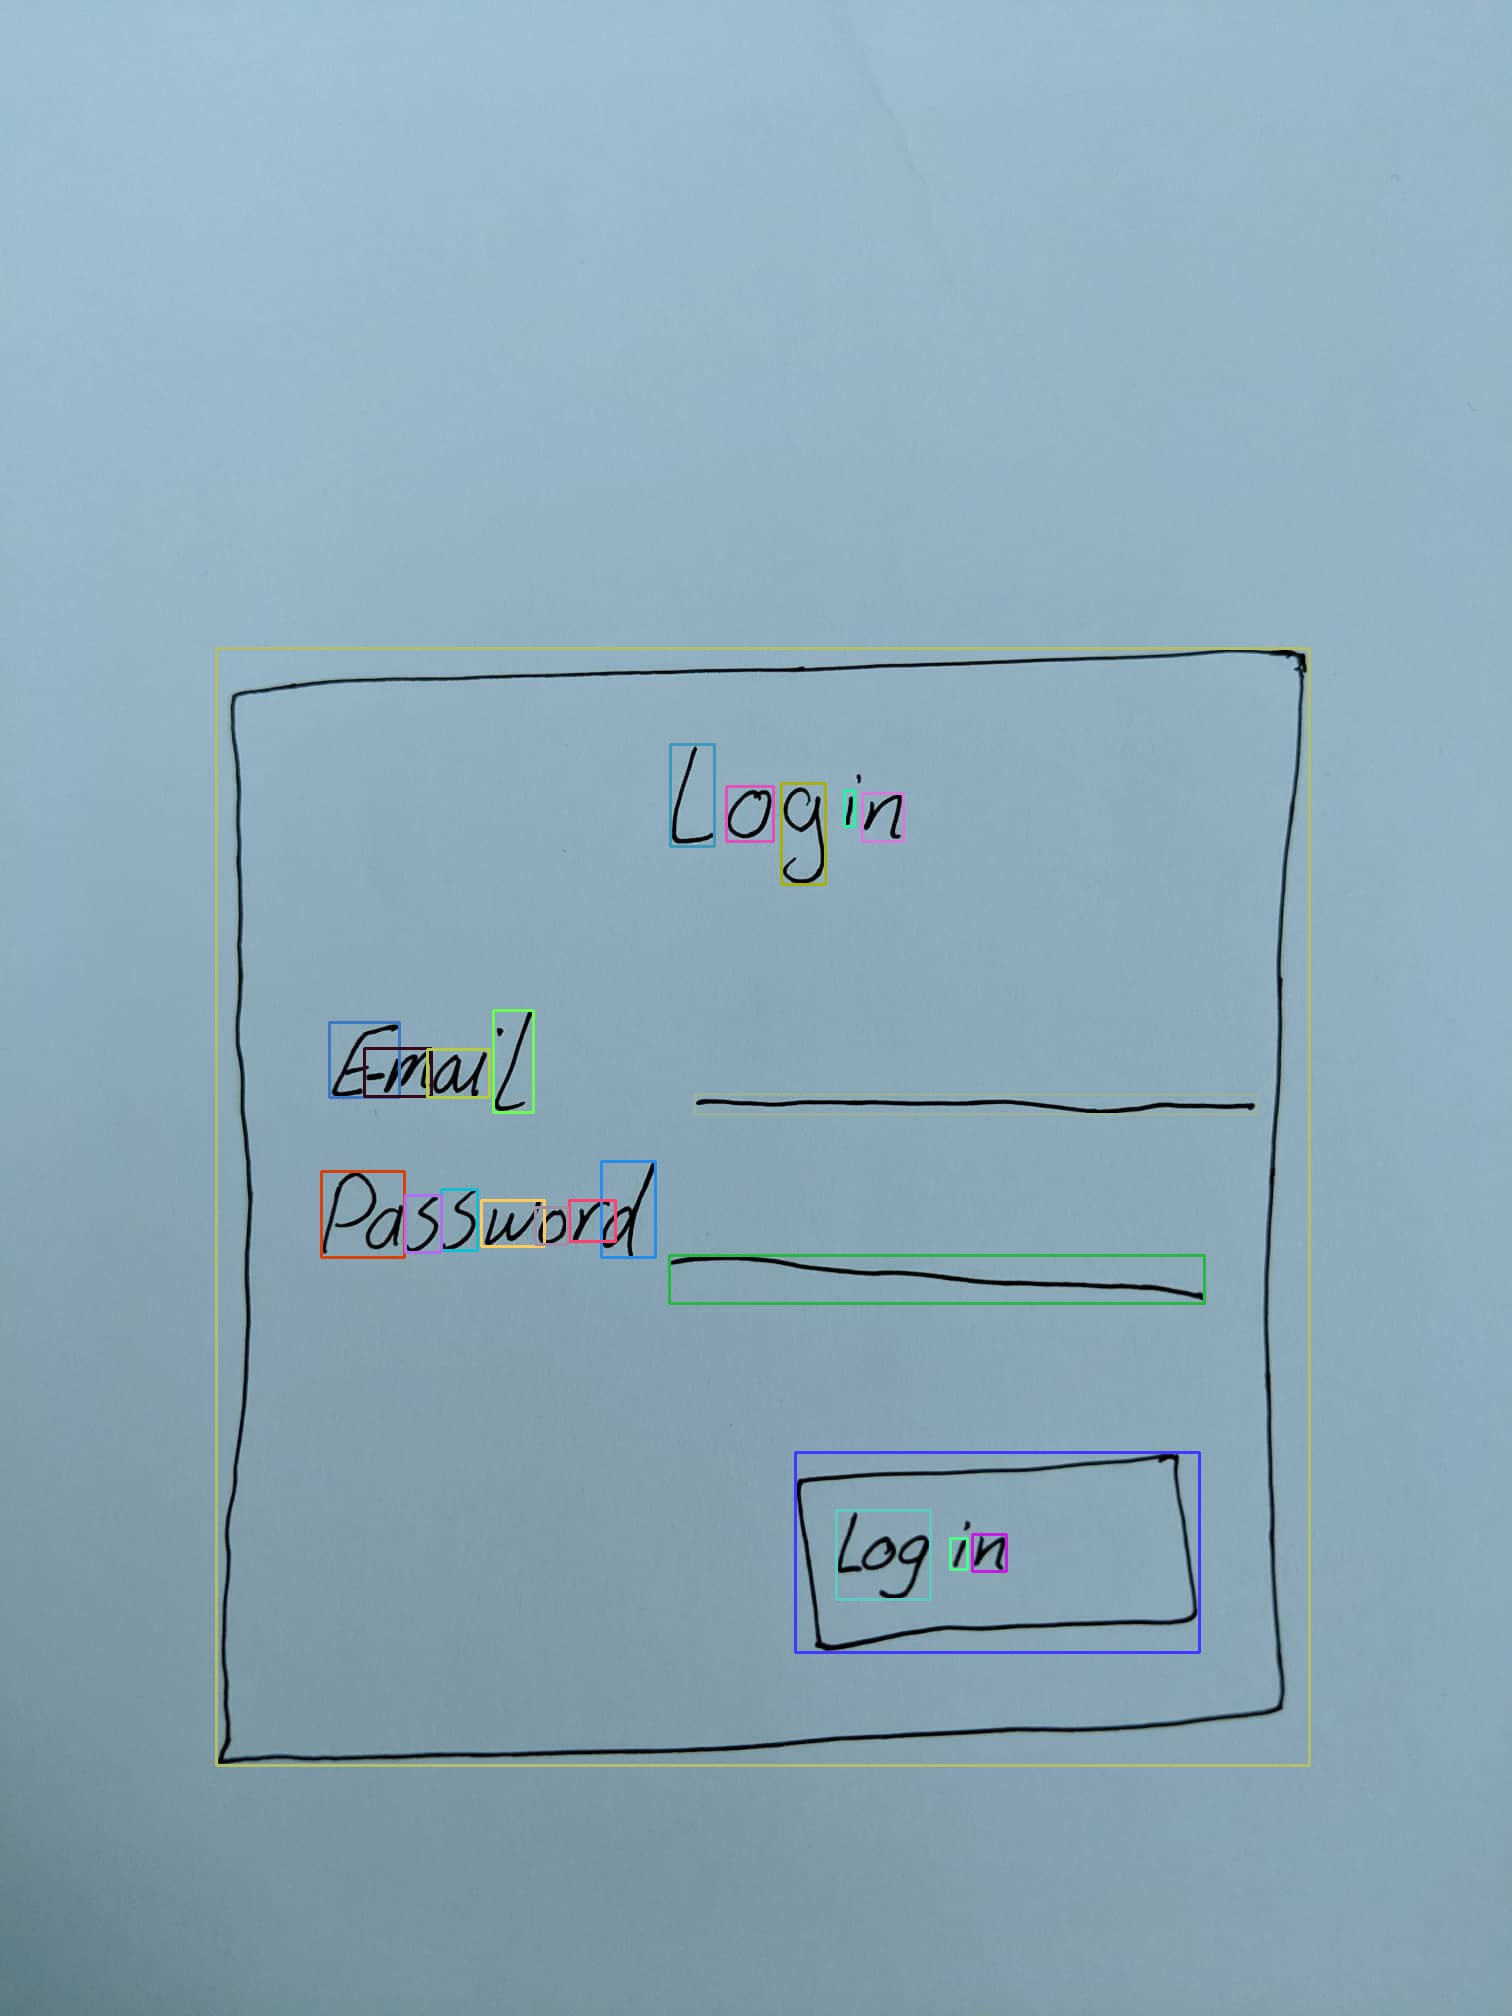 Log in
E-mail
Password
Log in